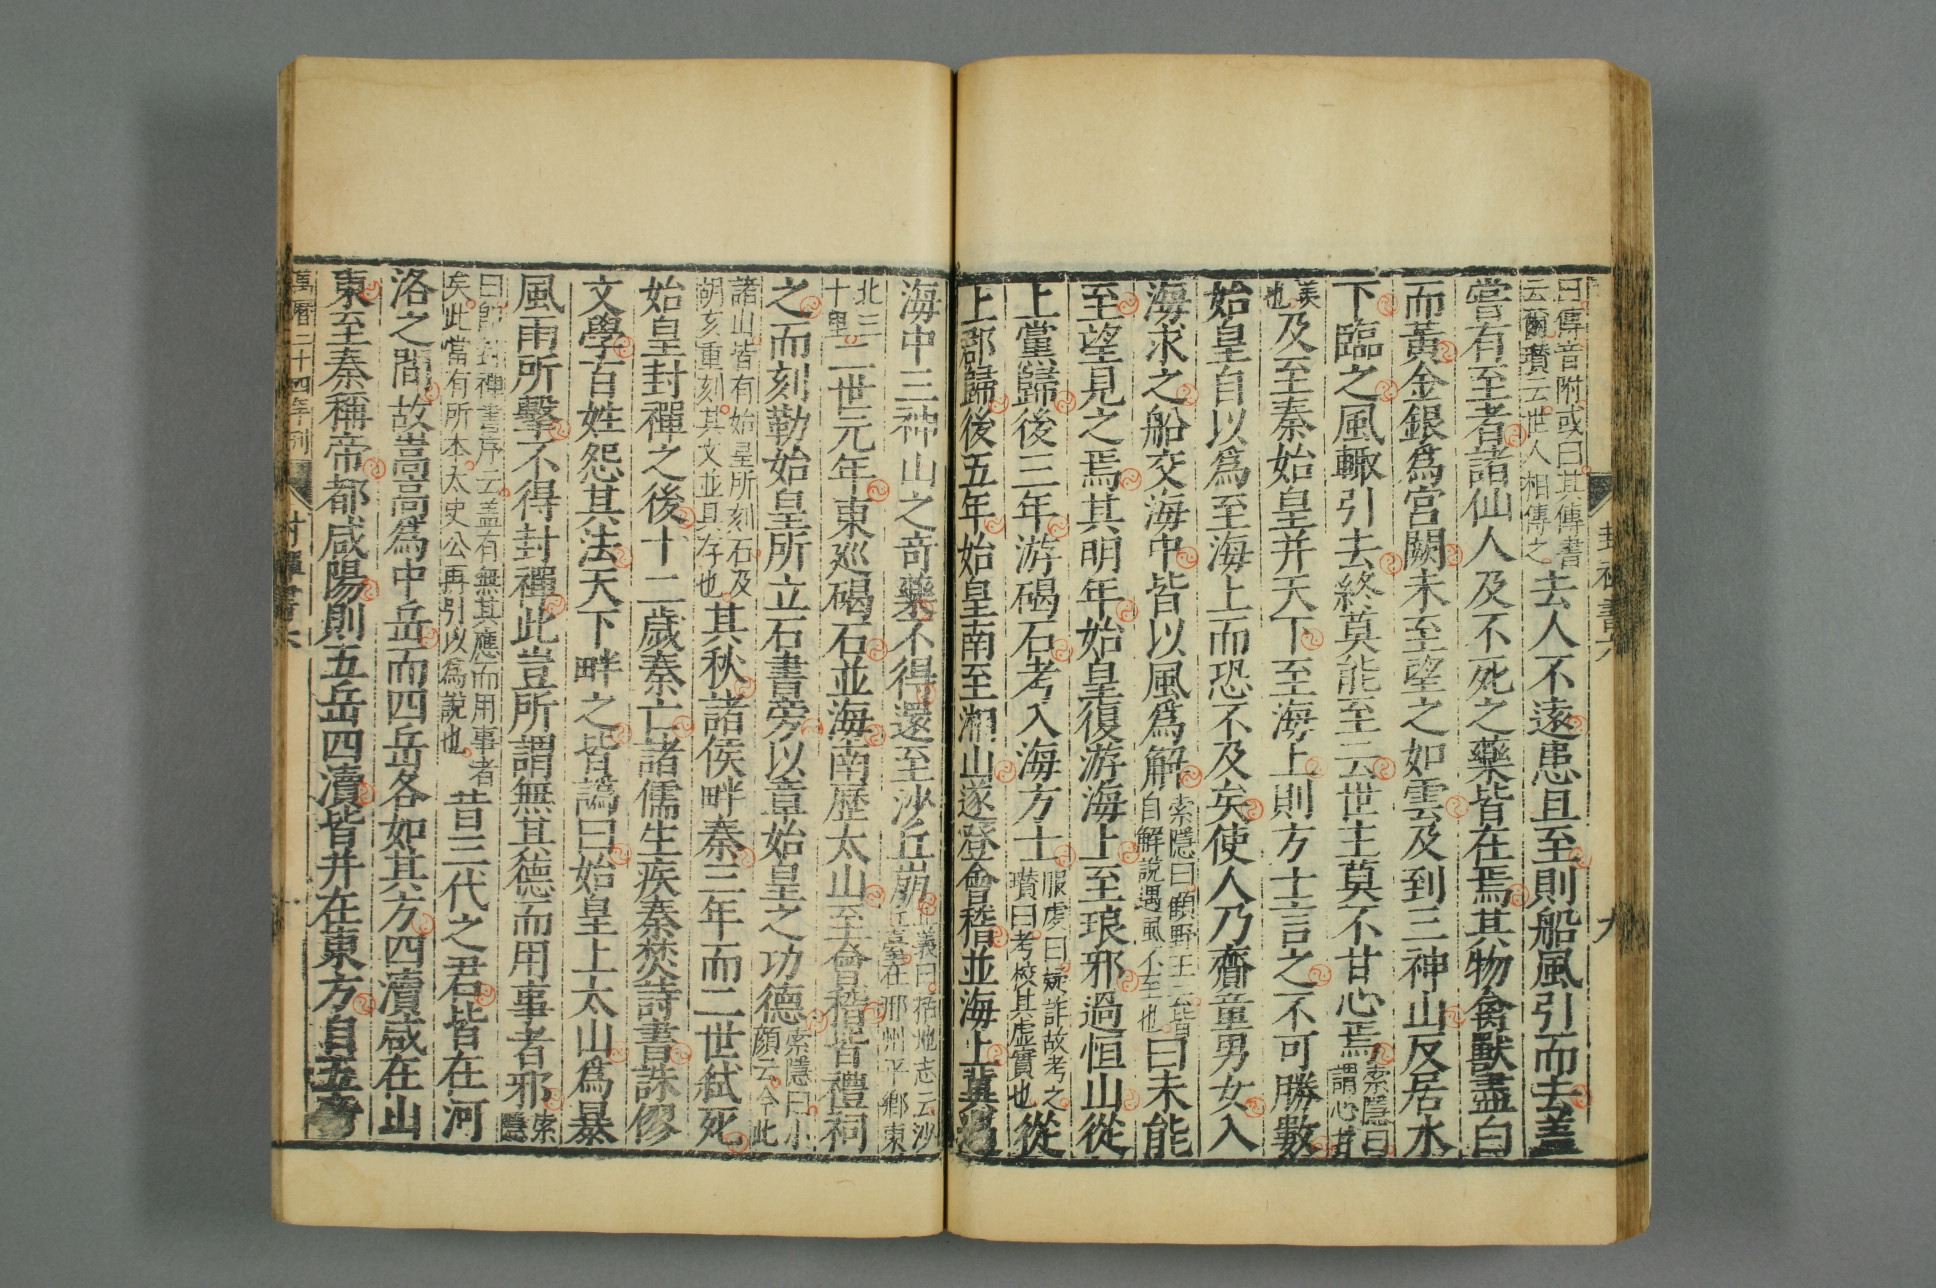 封禪書六 九
曰傳音附或曰其傳書云爾瓚云世人相傳之去人不遠患且至則船風引而去蓋
嘗有至者諸仙人及不死之藥皆在焉其物禽獸盡白
而黃金銀爲宮闕未至望之如雲及到三神山反居水
下臨之風輙引去終莫能至云世主莫不甘心焉索隱曰謂心甘
羨也及至秦始皇并天下至海上則方士言之不可勝數
始皇自以爲至海上而恐不及矣使人乃齎童男女入
海求之船交海中皆以風爲解索隱曰顧野王云皆自解說遇風不至也曰未能
至望見之焉其明年始皇復游海上至琅邪過恒山從
上黨歸後三年游碣石考入海方士服虔曰疑詐故考之瓚曰考校其虛實也從
上郡歸後五年始皇南至湘山遂登會稽並海上冀遇
海中三神山之奇藥不得還至沙丘崩正義曰括地志云沙丘臺在邢州平鄉東
北三十里二世元年東廵碣石並海南歷太山至會稽皆禮祠
之而刻勒始皇所立石書旁以章始皇之功德索隱曰小顏云今此
諸山皆有始皇所刻石及胡亥重刻其文並具存也其秋諸侯畔秦三年而二世弑死
始皇封禪之後十二歲秦亡諸儒生疾秦焚詩書誅僇
文學百姓怨其法天下畔之皆譌曰始皇上太山爲暴
風雨所擊不得封禪此豈所謂無其德而用事者邪索隱
曰卽封禪書序云蓋有無其應而用事者矣此當有所本太史公再引以爲說也昔三代之君皆在河
洛之間故嵩高爲中岳而四岳各如其方四瀆咸在山
東至秦稱帝都咸陽則五岳四瀆皆并在東方自五帝
萬曆二十四年刊 封禪書六